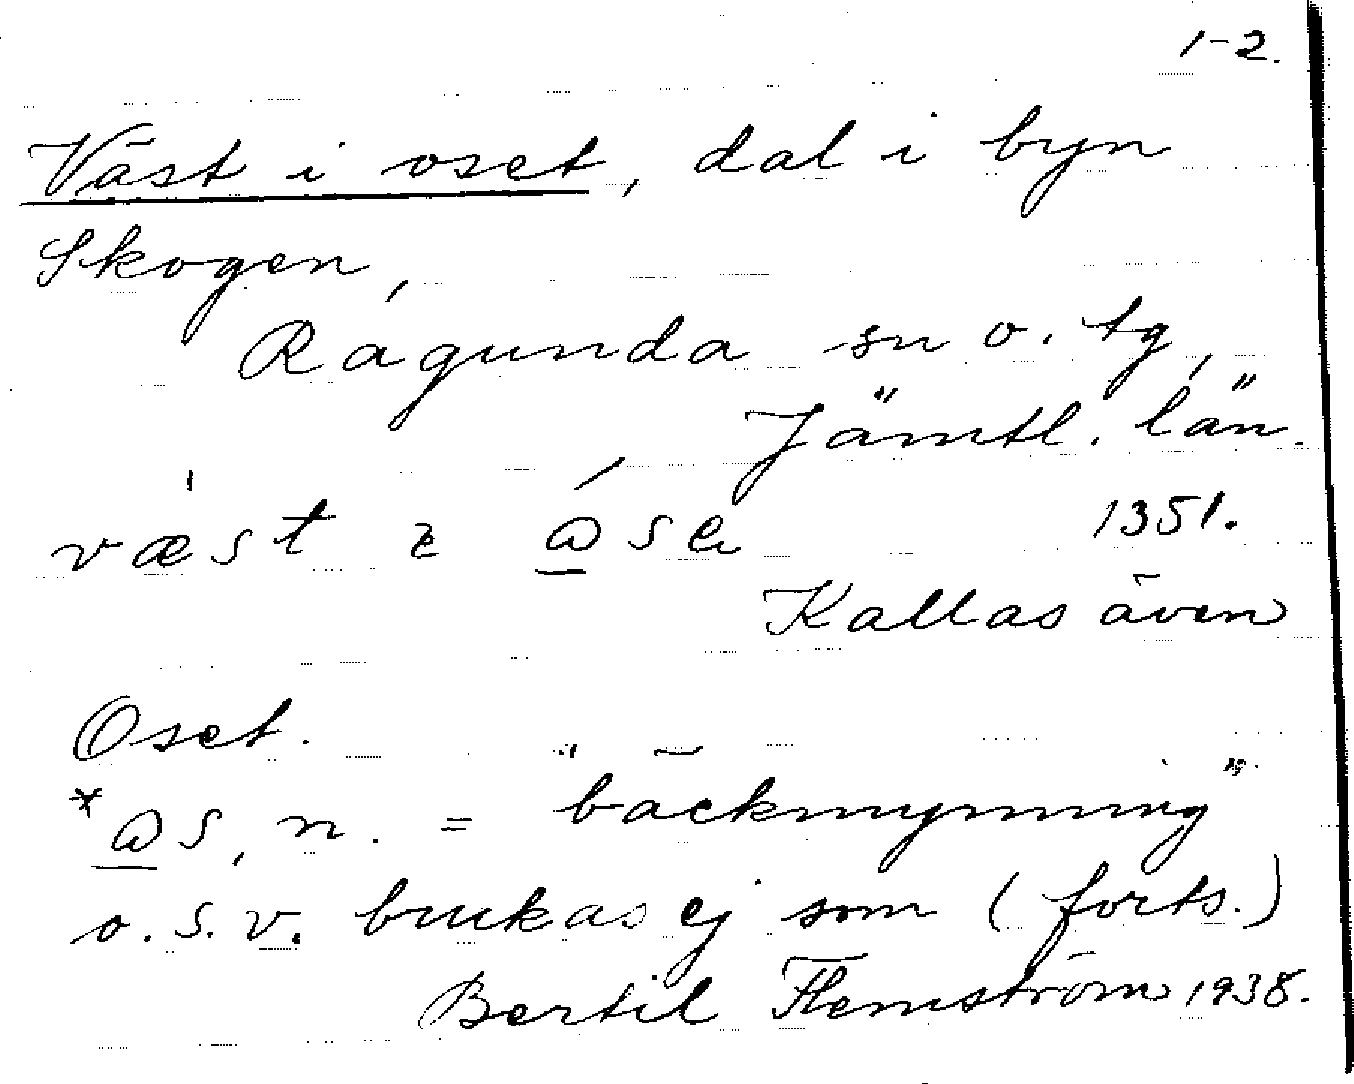 1-2.
Väst i oset, dal i byn
Skogen,
Ragunda sn o. tg,
Jämtl. län.
væst 1351.
Kallas även
Oset.
n. = "bäckmynning"
o.s.v. brukas ej som (forts.)
Bertil Flemström 1938.